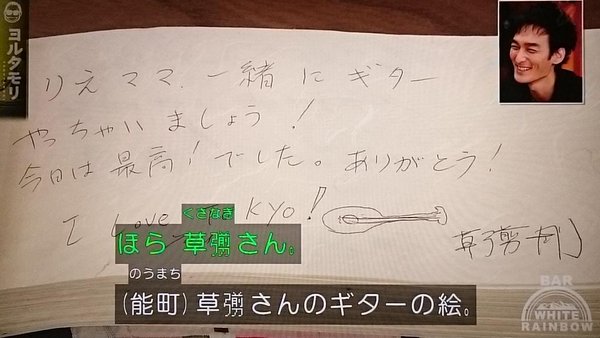 ヨルタモリ
りえママ、一緒にギター
やっちゃいましょう!
今日は最高!でした。ありがとう!
I Love kyo!
草彅剛
くさなぎ
ほら 草彅さん。
のうまち
(能町)草彅さんのギターの絵。
BAR
WHITE
RAINBOW